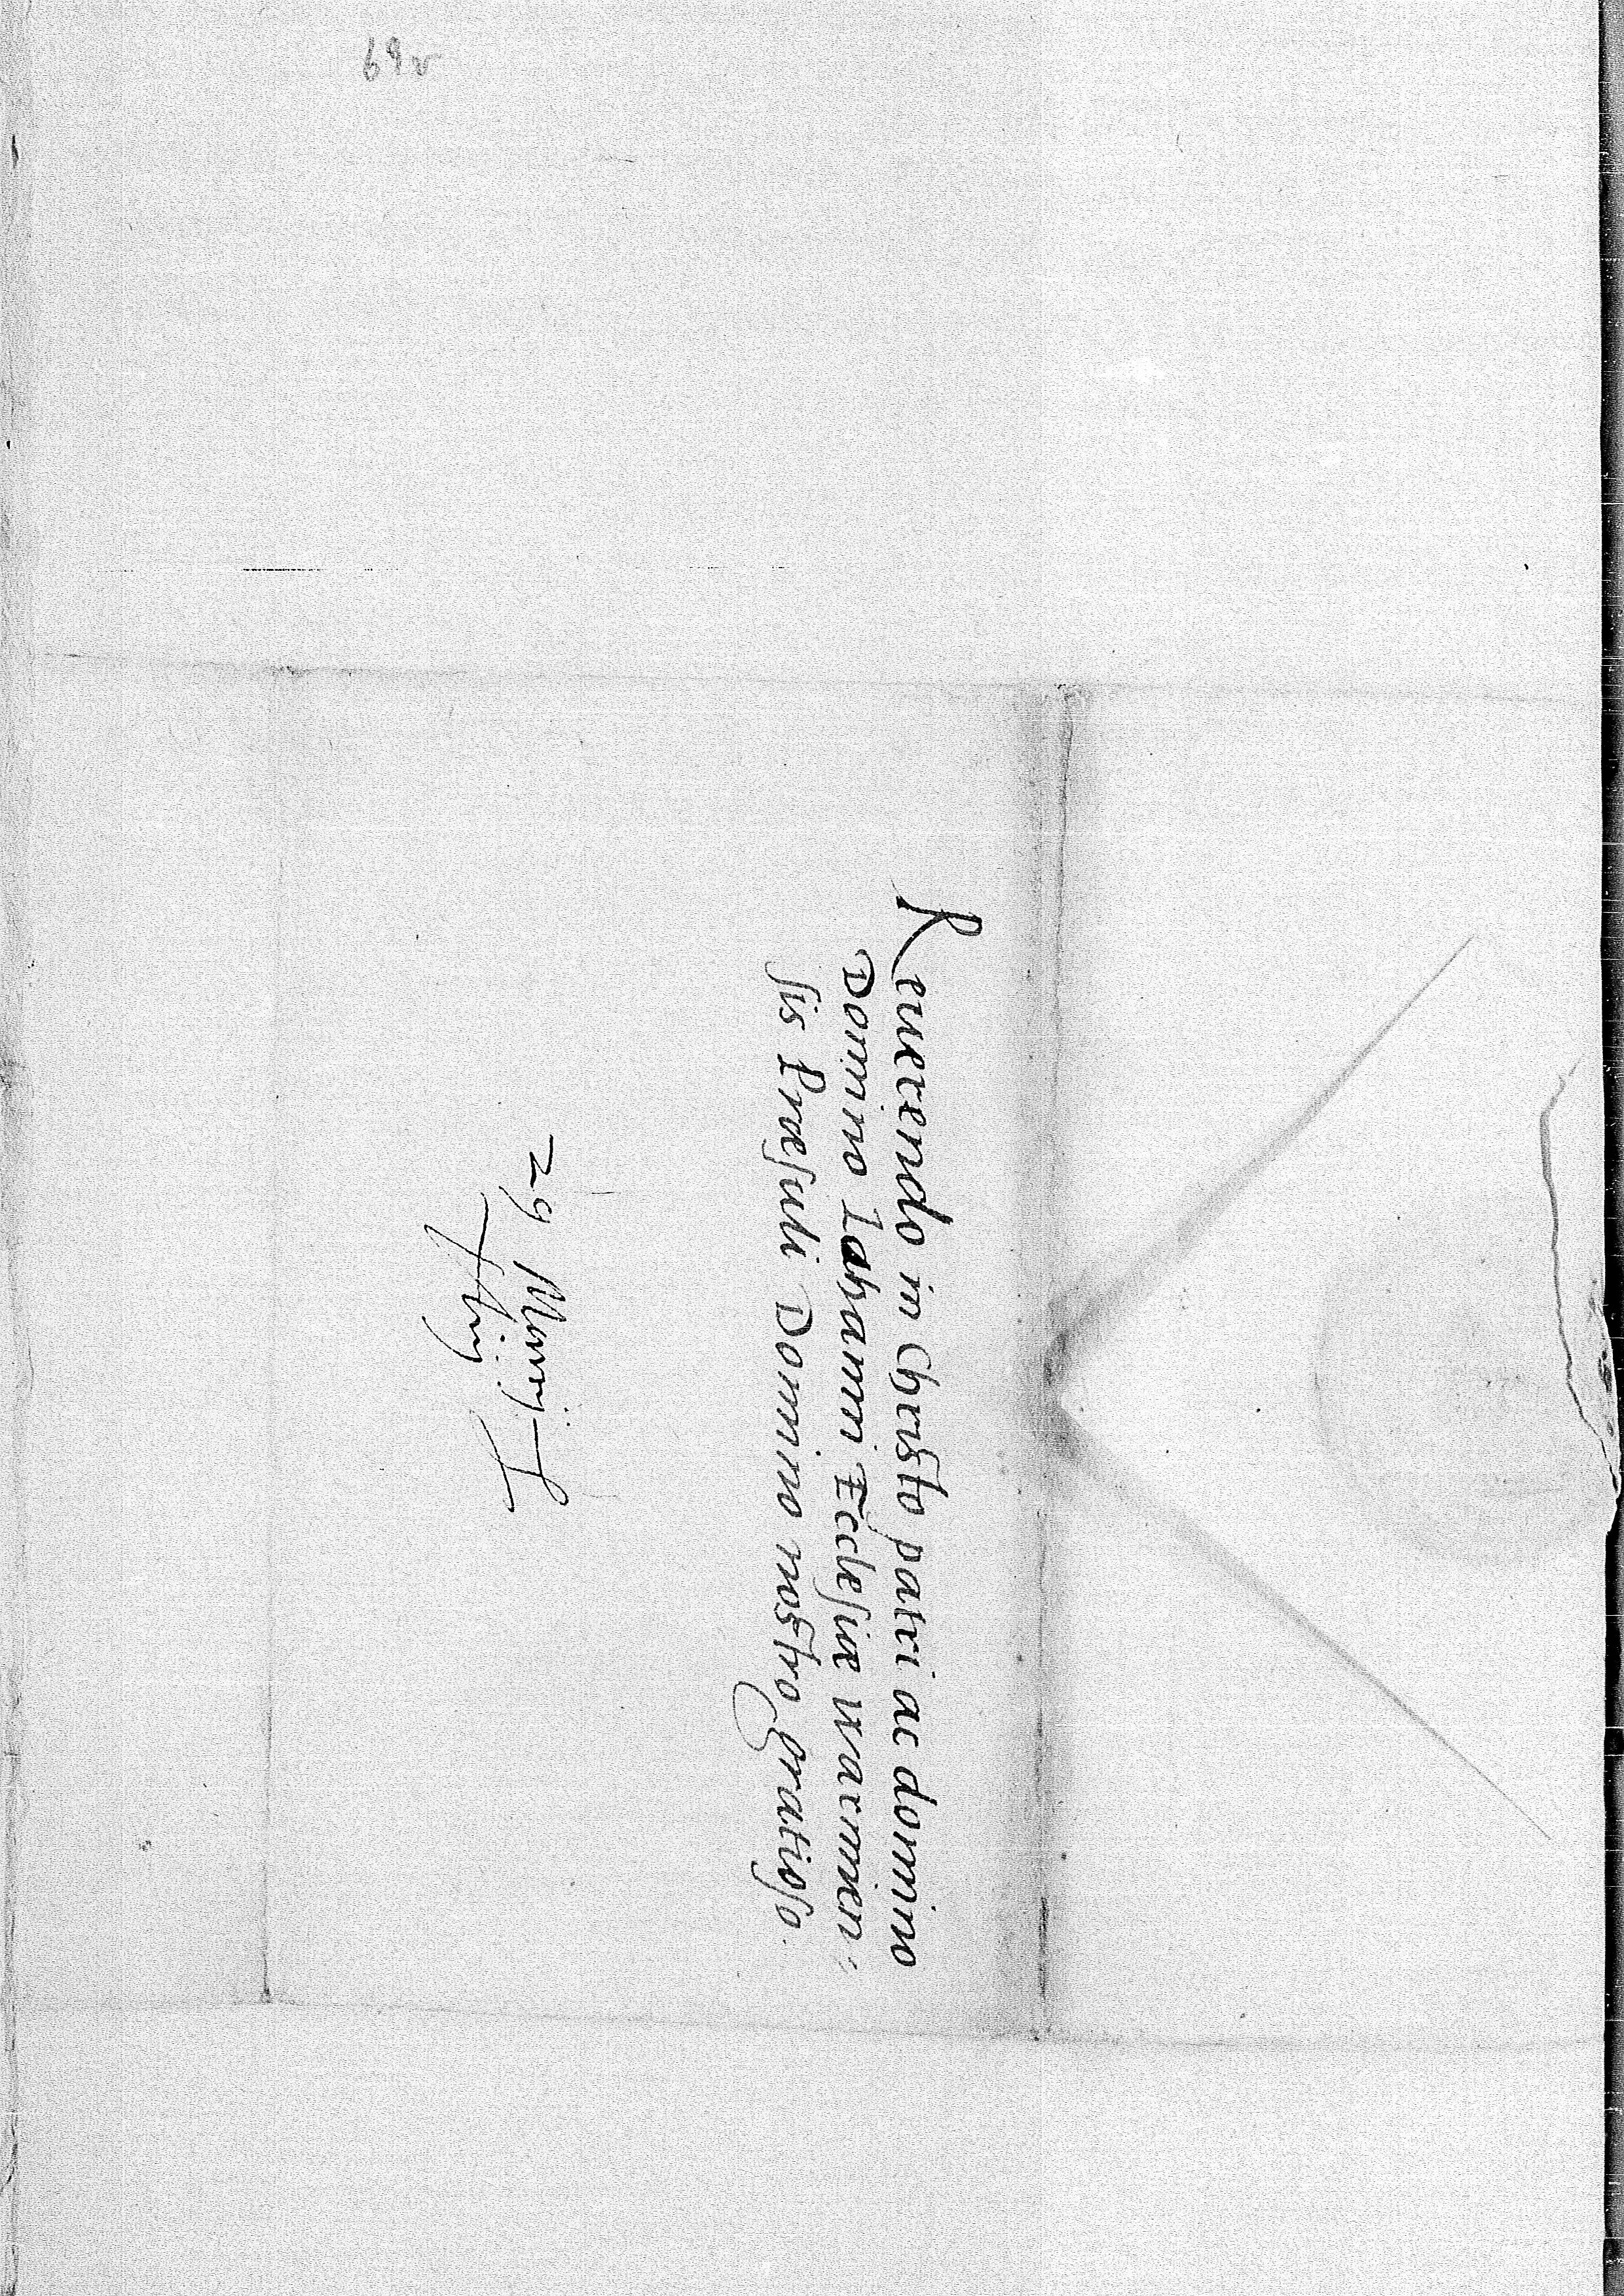 69v
Reuerendo in Christo patri ac domino
Domino Iohanni Ecclesiæ warmien„
sis Præsuli Domino nostro gratioso.
29